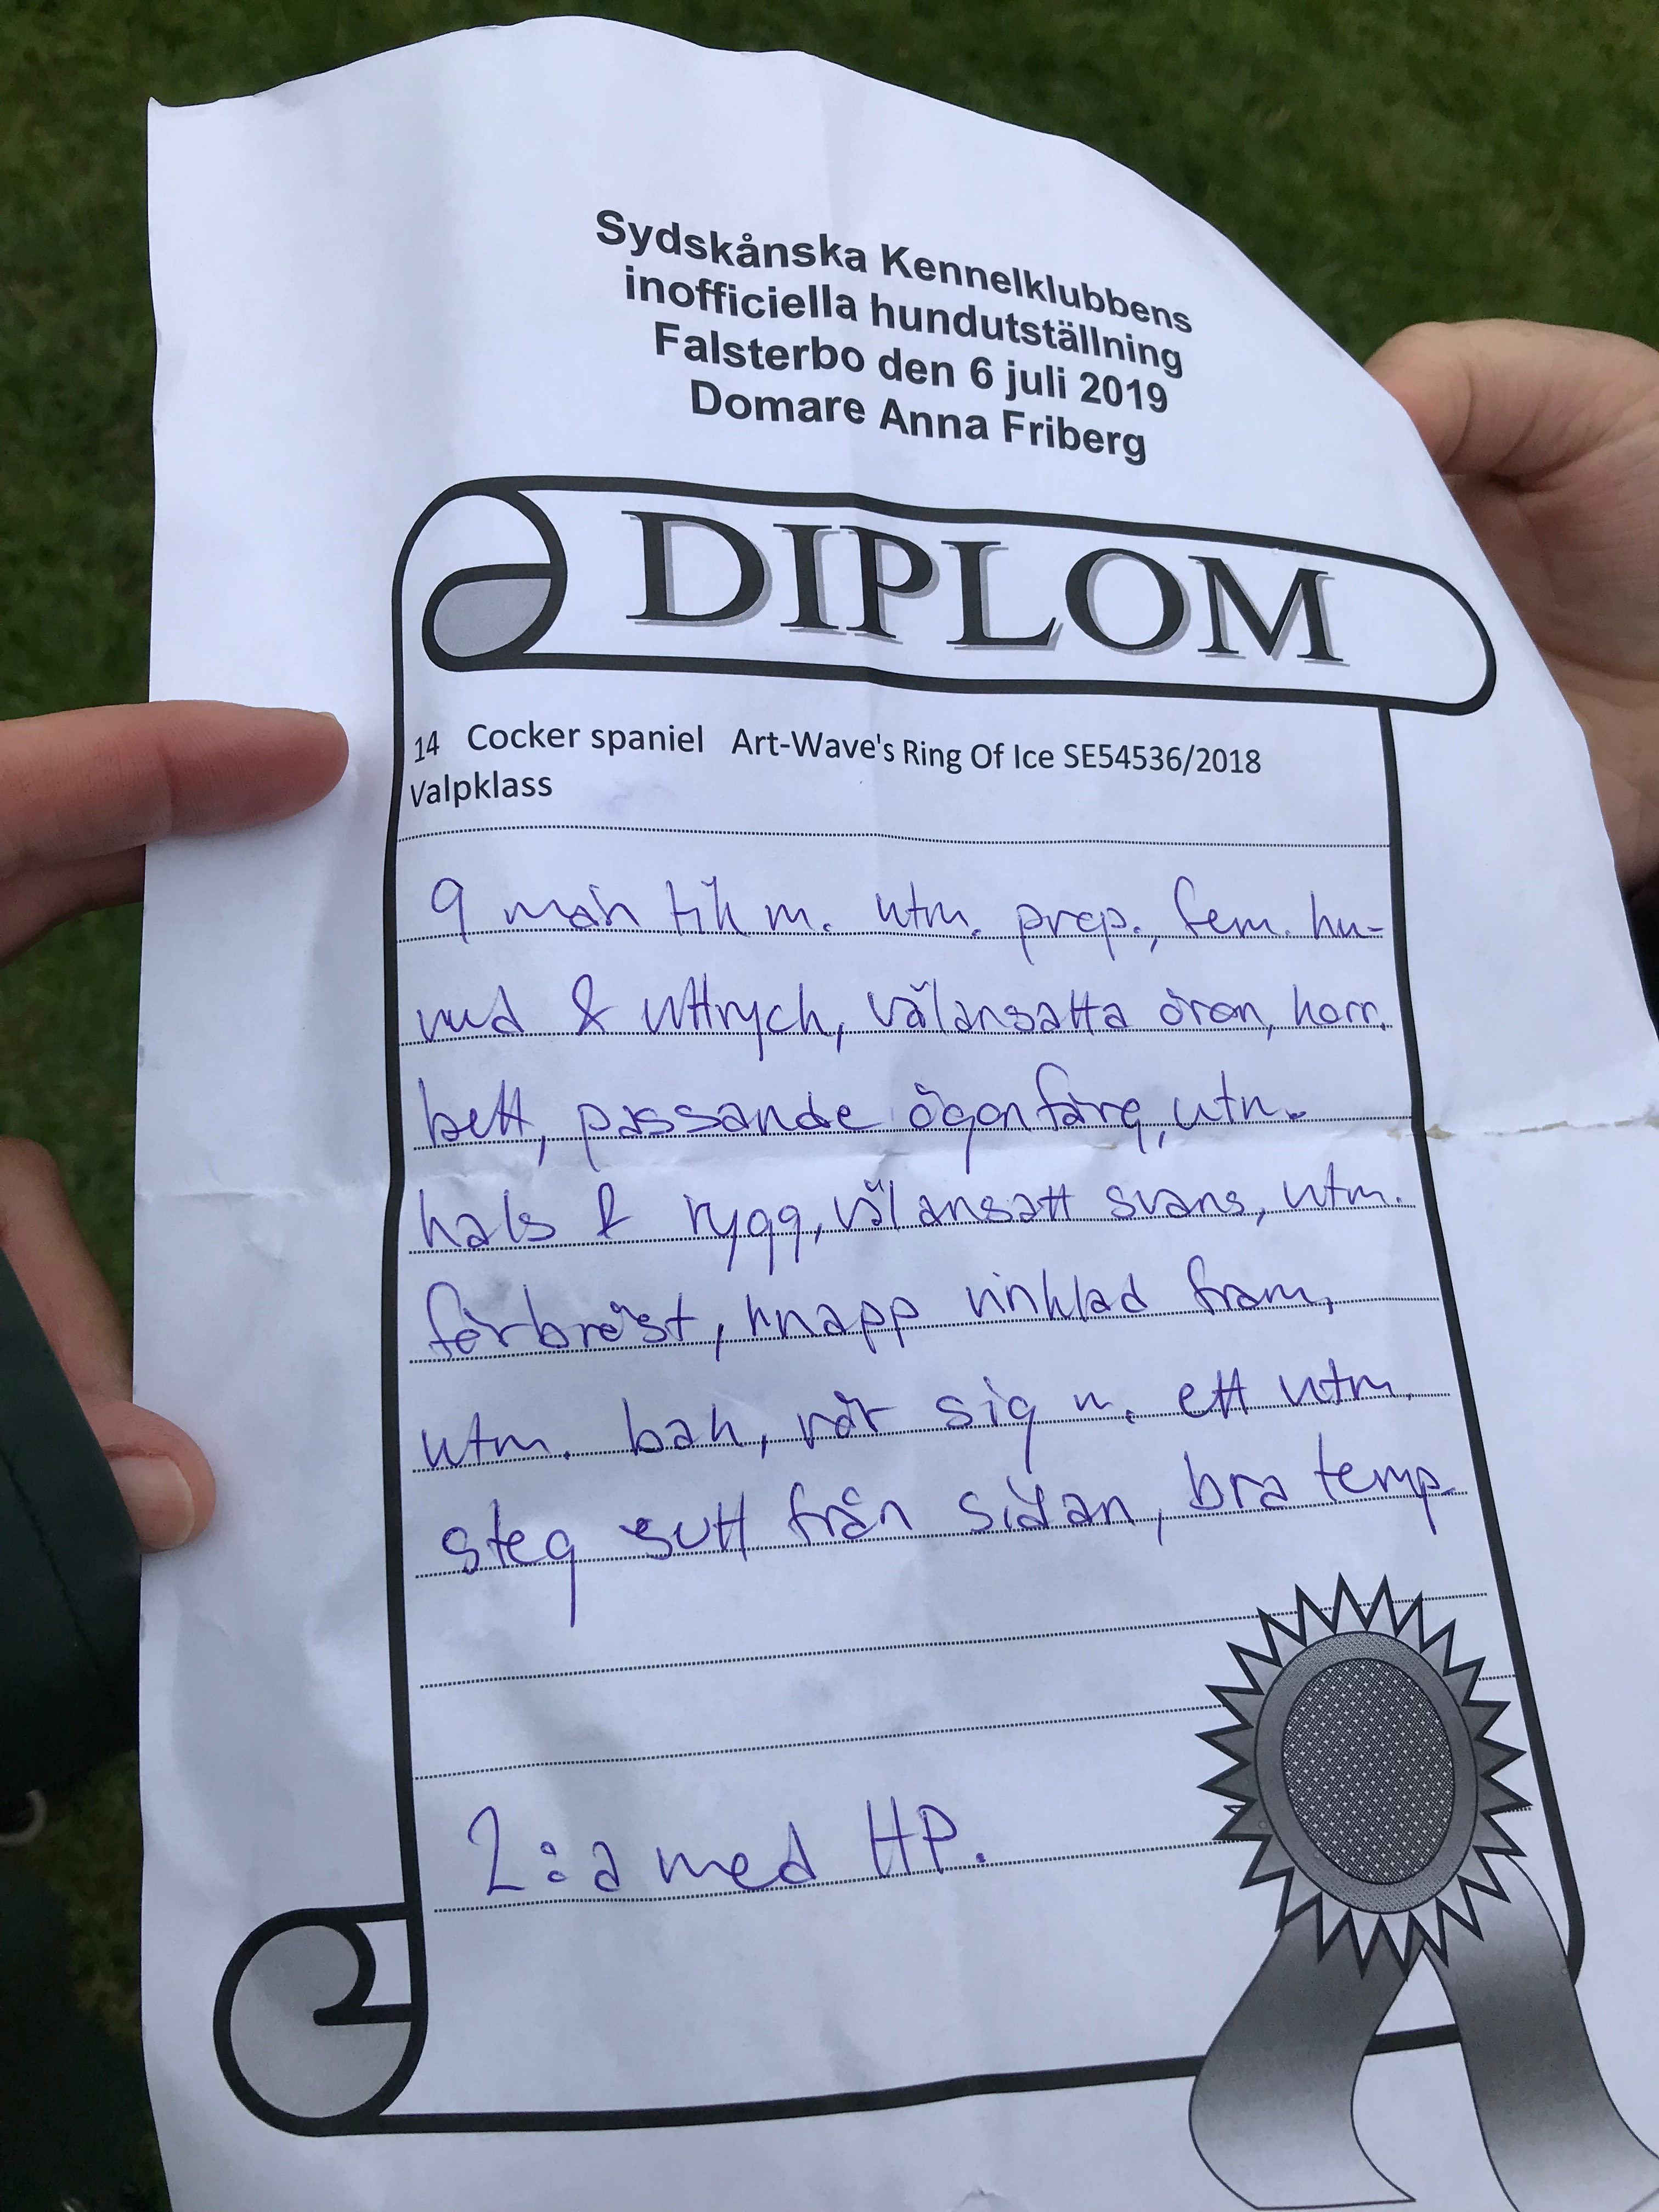 Sydskånska Kennelklubbens
inofficiella hundutställning
Falsterbo den 6 juli 2019
Domare Anna Friberg
DIPLOM
14 Cocker spaniel Art-Wave's Ring Of Ice SE54536/2018
Valpklass
9 mån tik m. utm. prop., fem. hu-
vud & uttryck, välansatta öron, korr.
bett, passande ögonfärg, utm.
hals & rygg, välansatt svans, utm.
förbröst, knapp vinklad fram,
utm. bak, rör sig m. ett utm.
steg sett från sidan, bra temp.
2:a med HP.